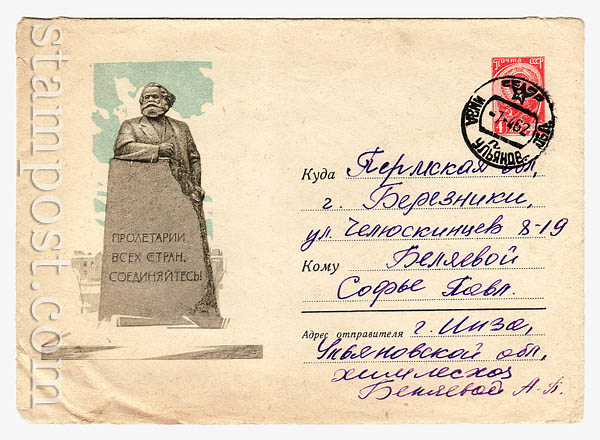 stampost.com
ПРОЛЕТАРИИ
ВСЕХ СТРАН,
СОЕДИНЯЙТЕСЬ!
ПОЧТА СССР
ИНЗА
-7-462
Куда Пермская обл,
г. Березники,
ул. Челюскинцев 8-19
Кому Беляевой
Софье Павл.
Адрес отправителя г. Инза,
Ульяновской обл,
химлесхоз
Беляевой А-П.